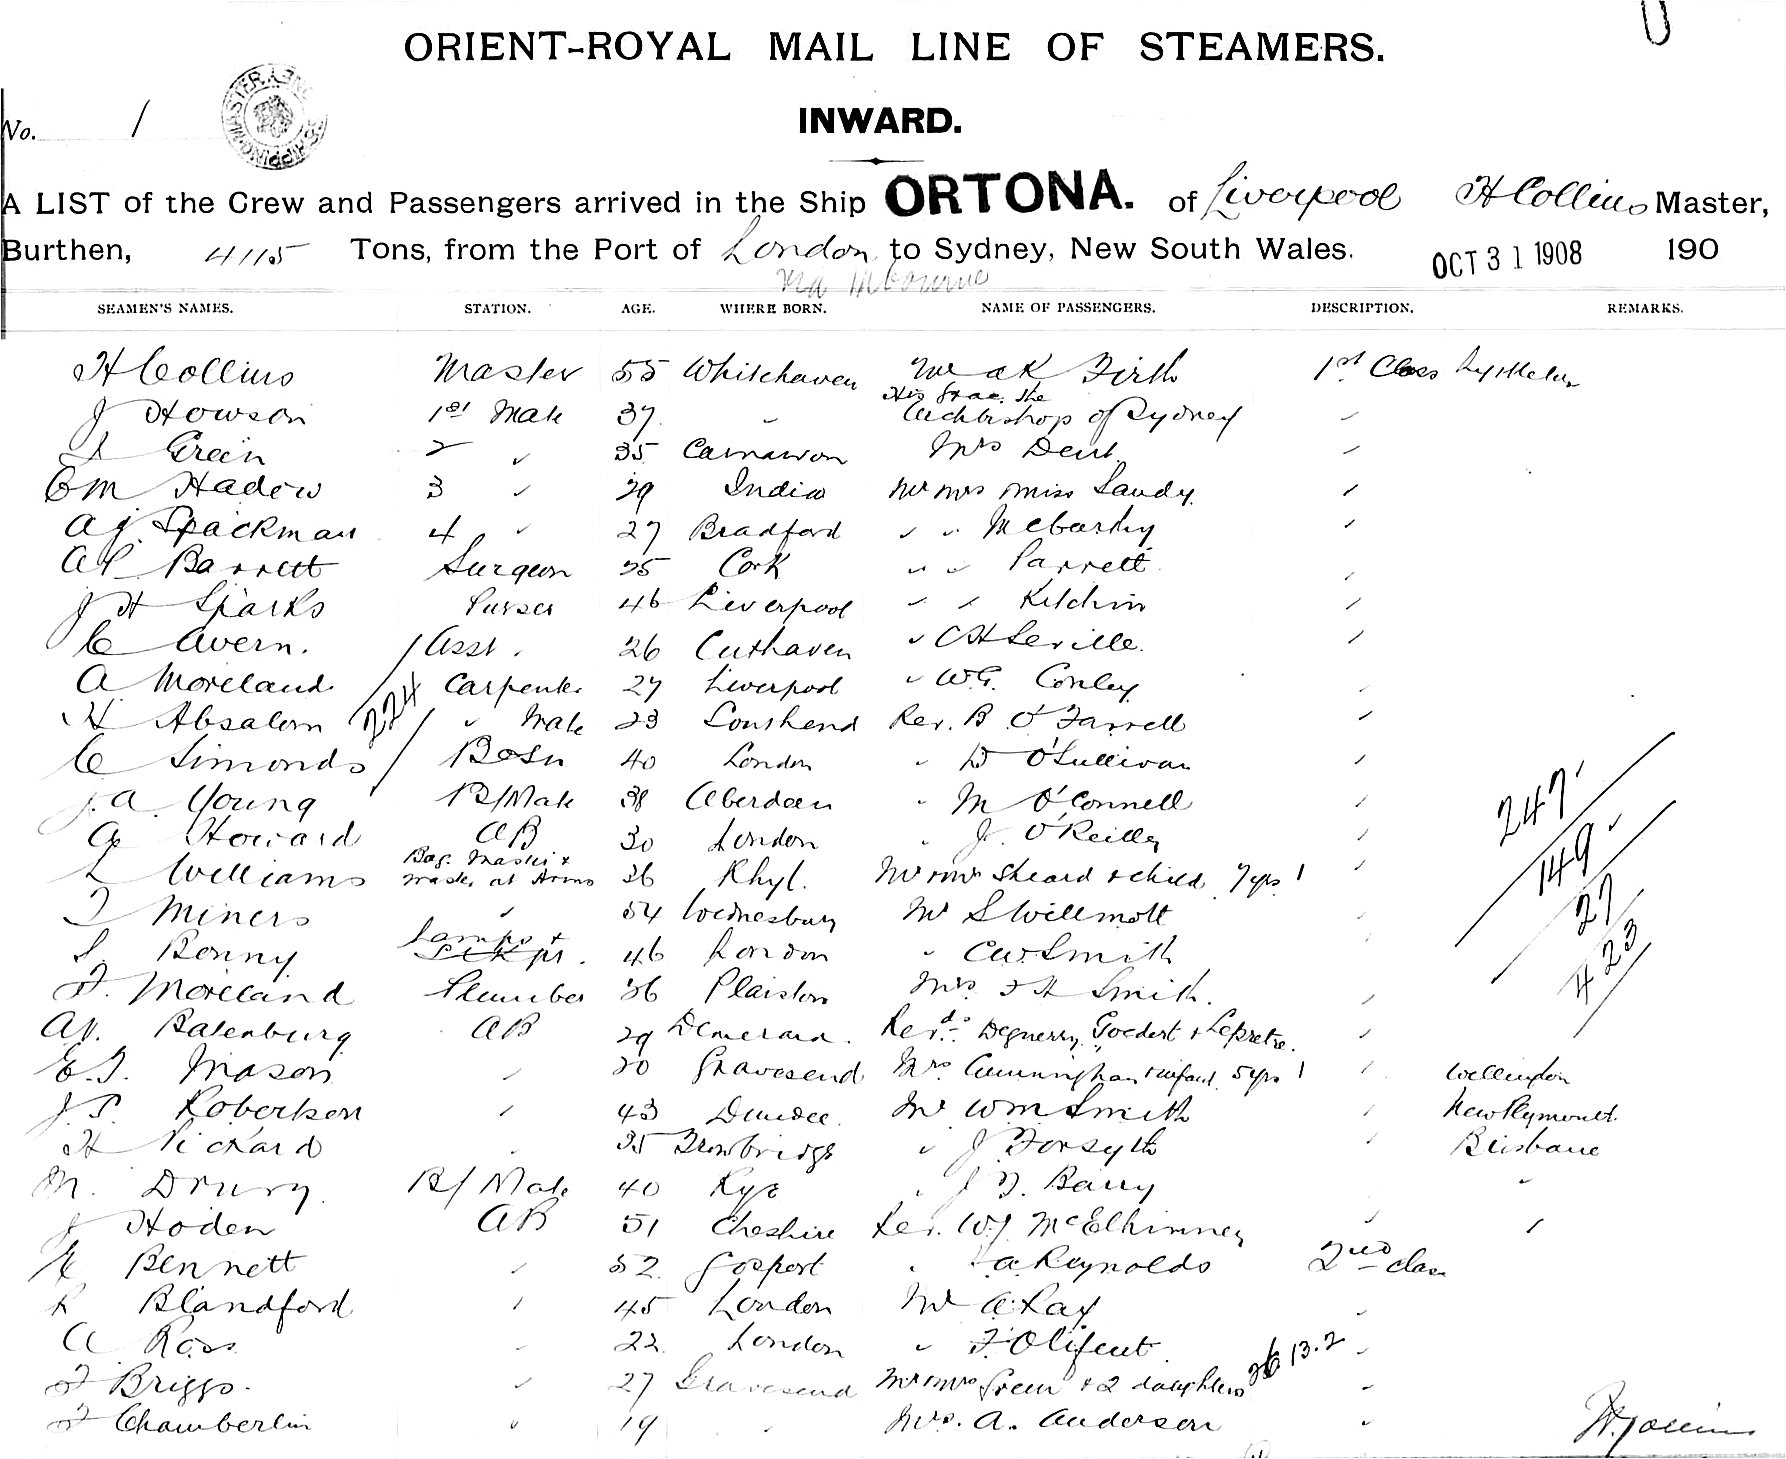 ORIENT-ROYAL MAIL LINE OF STEAMERS.
INWARD.
No. 1
A LIST of the Crew and Passengers arrived in the Ship ORTONA. of Liverpool H Collins Master,
Burthen, 4115 Tons, from the Port of London to Sydney, New South Wales. OCT 31 1908 190
via
SEAMEN'S NAMES. STATION. AGE. WHERE BORN. NAME OF PASSENGERS. DESCRIPTION. REMARKS.
H Collins Master 55 Whitehaven Firth 1st Class
J Howson 1st Mate 37 " His Grace the Archbishop of Sydney "
Green 2 " 35 Carnarvon Mrs Dent "
Hadow 3 " 29 India Mr Mrs Miss Landy "
A J Spackman 4 " 27 Bradford " " McCarthy "
Barrett Surgeon 25 Cork " " Parrett "
J H Sparks Purser 46 Liverpool " " Kitchin "
C Avern. Asst. 26 Cuxhaven " C H Seville. "
A Moreland 224 Carpenter 27 Liverpool " W.G. Conley "
H Absalom " Mate 23 Southend Rev. B O'Farrell "
C Simonds Bosn 40 London " D O'Sullivan "
J. A Young B/Mate 38 Aberdeen " M O'Connell " 247
Howard AB 30 London " J. O'Reilly " 149
L Williams Bag. Master & Master at Arms 36 Rhyl. Mr & Mrs Sheard & child 7 yrs 1 " 27
T Miners " 54 Wednesbury Mr S Willmott " 423
S. Benny Lamps & 46 London " C W Smith "
F. Moreland Plumber 36 Plaiston Mrs. F H Smith. "
Batenburg AB 29 Demerara. Revds. Deguerry, Goedert & Lepretre. "
E. T. Mason " 20 Gravesend Mrs Cunningham & infant 5 yrs 1 " Wellington
J P Robertson " 43 Dundee. Mr Wm Smith " New Plymouth
H Rickard " 35 Trowbridge " J Forsyth " Brisbane
M. Drury B/Mate 40 Rye " Barry "
J Hoden AB 51 Cheshire Rev. W J McElhinney " "
Bennett " 52 Gosport " A Reynolds 2nd class
R Blandford " 45 London Mr A. Ray "
A Ross " 22 London " F. Olifent "
F Briggs. " 27 Gravesend Mr Mrs Green & 2 daughters 26 13.2 "
F Chamberlin " 19 " Mrs. A. Anderson "
H. Collins